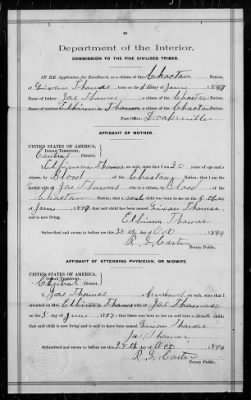 Department of the Interior,
COMMISSION TO THE FIVE CIVILIZED TRIBES.
IN RE Application for Enrollment, as a citizen of the Choctaw Nation,
of Thomas, born on the 8 day of June, 189
Name of Father: Jas Thomas, a citizen of the Choctaw Nation.
Name of mother: Elhinna Thomas a citizen of the Choctaw Nation.
Post Office:
AFFIDAVIT OF MOTHER.
UNITED STATES OF AMERICA,
INDIAN TERRITORY,
Central District.
I, Elhinna Thomas on oath, state that I am 30 years of age and a
citizen, by Blood of the Choctaw Nation; that I am the
lawful wife of Jas Thomas who is a citizen, by Blood of the
Choctaw Nation; that a male child was born to me on 8 day
of June, 1897 that said child has been named Thomas,
and is now living.
Elhinna Thomas
Subscribed and sworn to before me this 28 day of Oct 1899
Notary Public.
AFFIDAVIT OF ATTENDING PHYSICIAN, OR MIDWIFE.
UNITED STATES OF AMERICA,
INDIAN TERRITORY,
Central District.
I, Jas Thomas, a on oath, state that I
attended on Mrs. Elhinna Thomas wife of Jas Thomas
on the 8 day of June, 1897; that there was born to her on said date a male child;
that said child is now living and is said to have been named Thomas
Jas Thomas
Subscribed and sworn to before me this 28th day of Oct 1899
Notary Public.